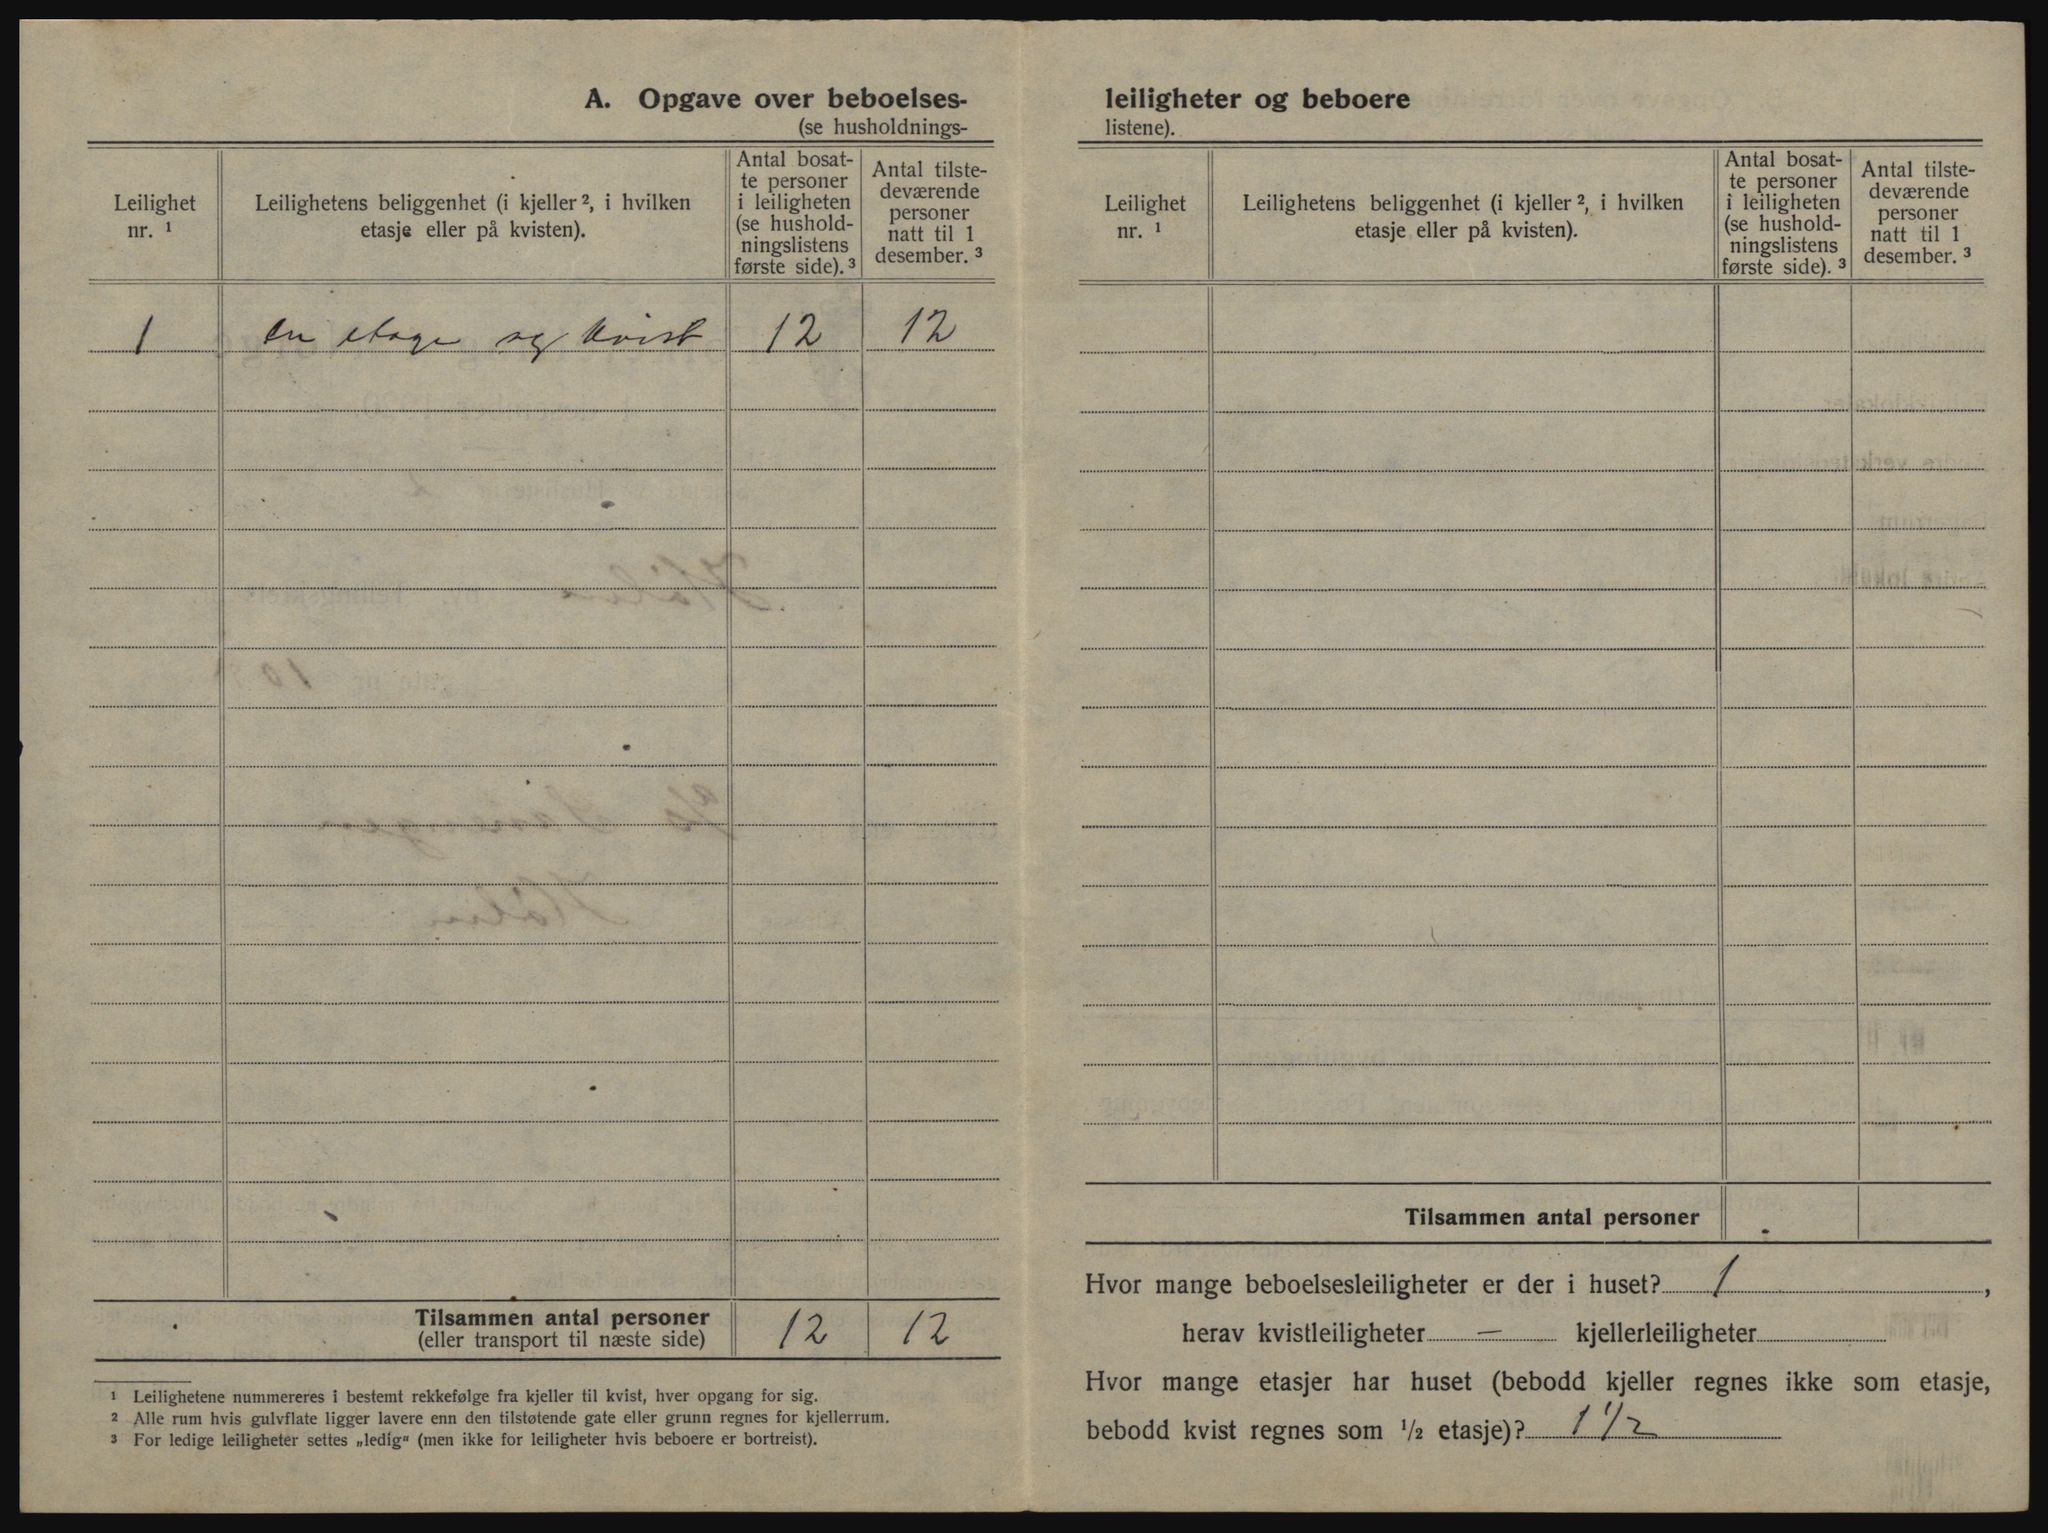 A. Opgave over beboelses-
(se husholdnings-
Leilighet nr. ¹
Leilighetens beliggenhet (i kjeller ², i hvilken etasje eller på kvisten).
Antal bosat-
te personer
i leiligheten
(se hushold-
ningslistens
første side). ³
Antal tilste-
deværende
personer
natt til 1
desember. ³
1 en etage og kvist 12 12
Tilsammen antal personer 12 12
(eller transport til næste side)
¹ Leilighetene nummereres i bestemt rekkefølge fra kjeller til kvist, hver opgang for sig.
² Alle rum hvis gulvflate ligger lavere enn den tilstøtende gate eller grunn regnes for kjellerrum.
³ For ledige leiligheter settes „ledig“ (men ikke for leiligheter hvis beboere er bortreist).
leiligheter og beboere
listene).
Leilighet nr. ¹
Leilighetens beliggenhet (i kjeller ², i hvilken etasje eller på kvisten).
Antal bosat-
te personer
i leiligheten
(se hushold-
ningslistens
første side). ³
Antal tilste-
deværende
personer
natt til 1
desember. ³
Tilsammen antal personer
Hvor mange beboelsesleiligheter er der i huset? 1 ,
herav kvistleiligheter — kjellerleiligheter
Hvor mange etasjer har huset (bebodd kjeller regnes ikke som etasje,
bebodd kvist regnes som ½ etasje)? 1 ½